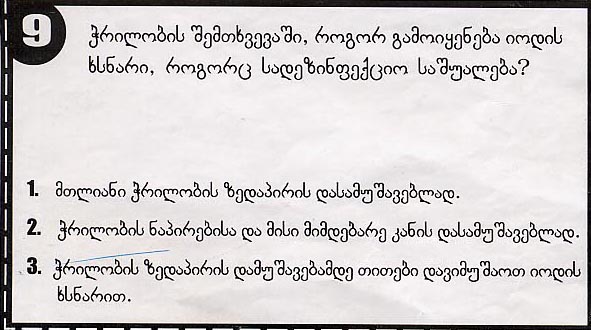 9
ჭრილობის შემთხვევაში, როგორ გამოიყენება იოდის
ხსნარი, როგორც სადეზინფექციო საშუალება?
1. მთლიანი ჭრილობის ზედაპირის დასამუშავებლად.
2. ჭრილობის ნაპირებისა და მისი მიმდებარე კანის დასამუშავებლად.
3. ჭრილობის ზედაპირის დამუშავებამდე თითები დავიმუშაოთ იოდის
ხსნარით.